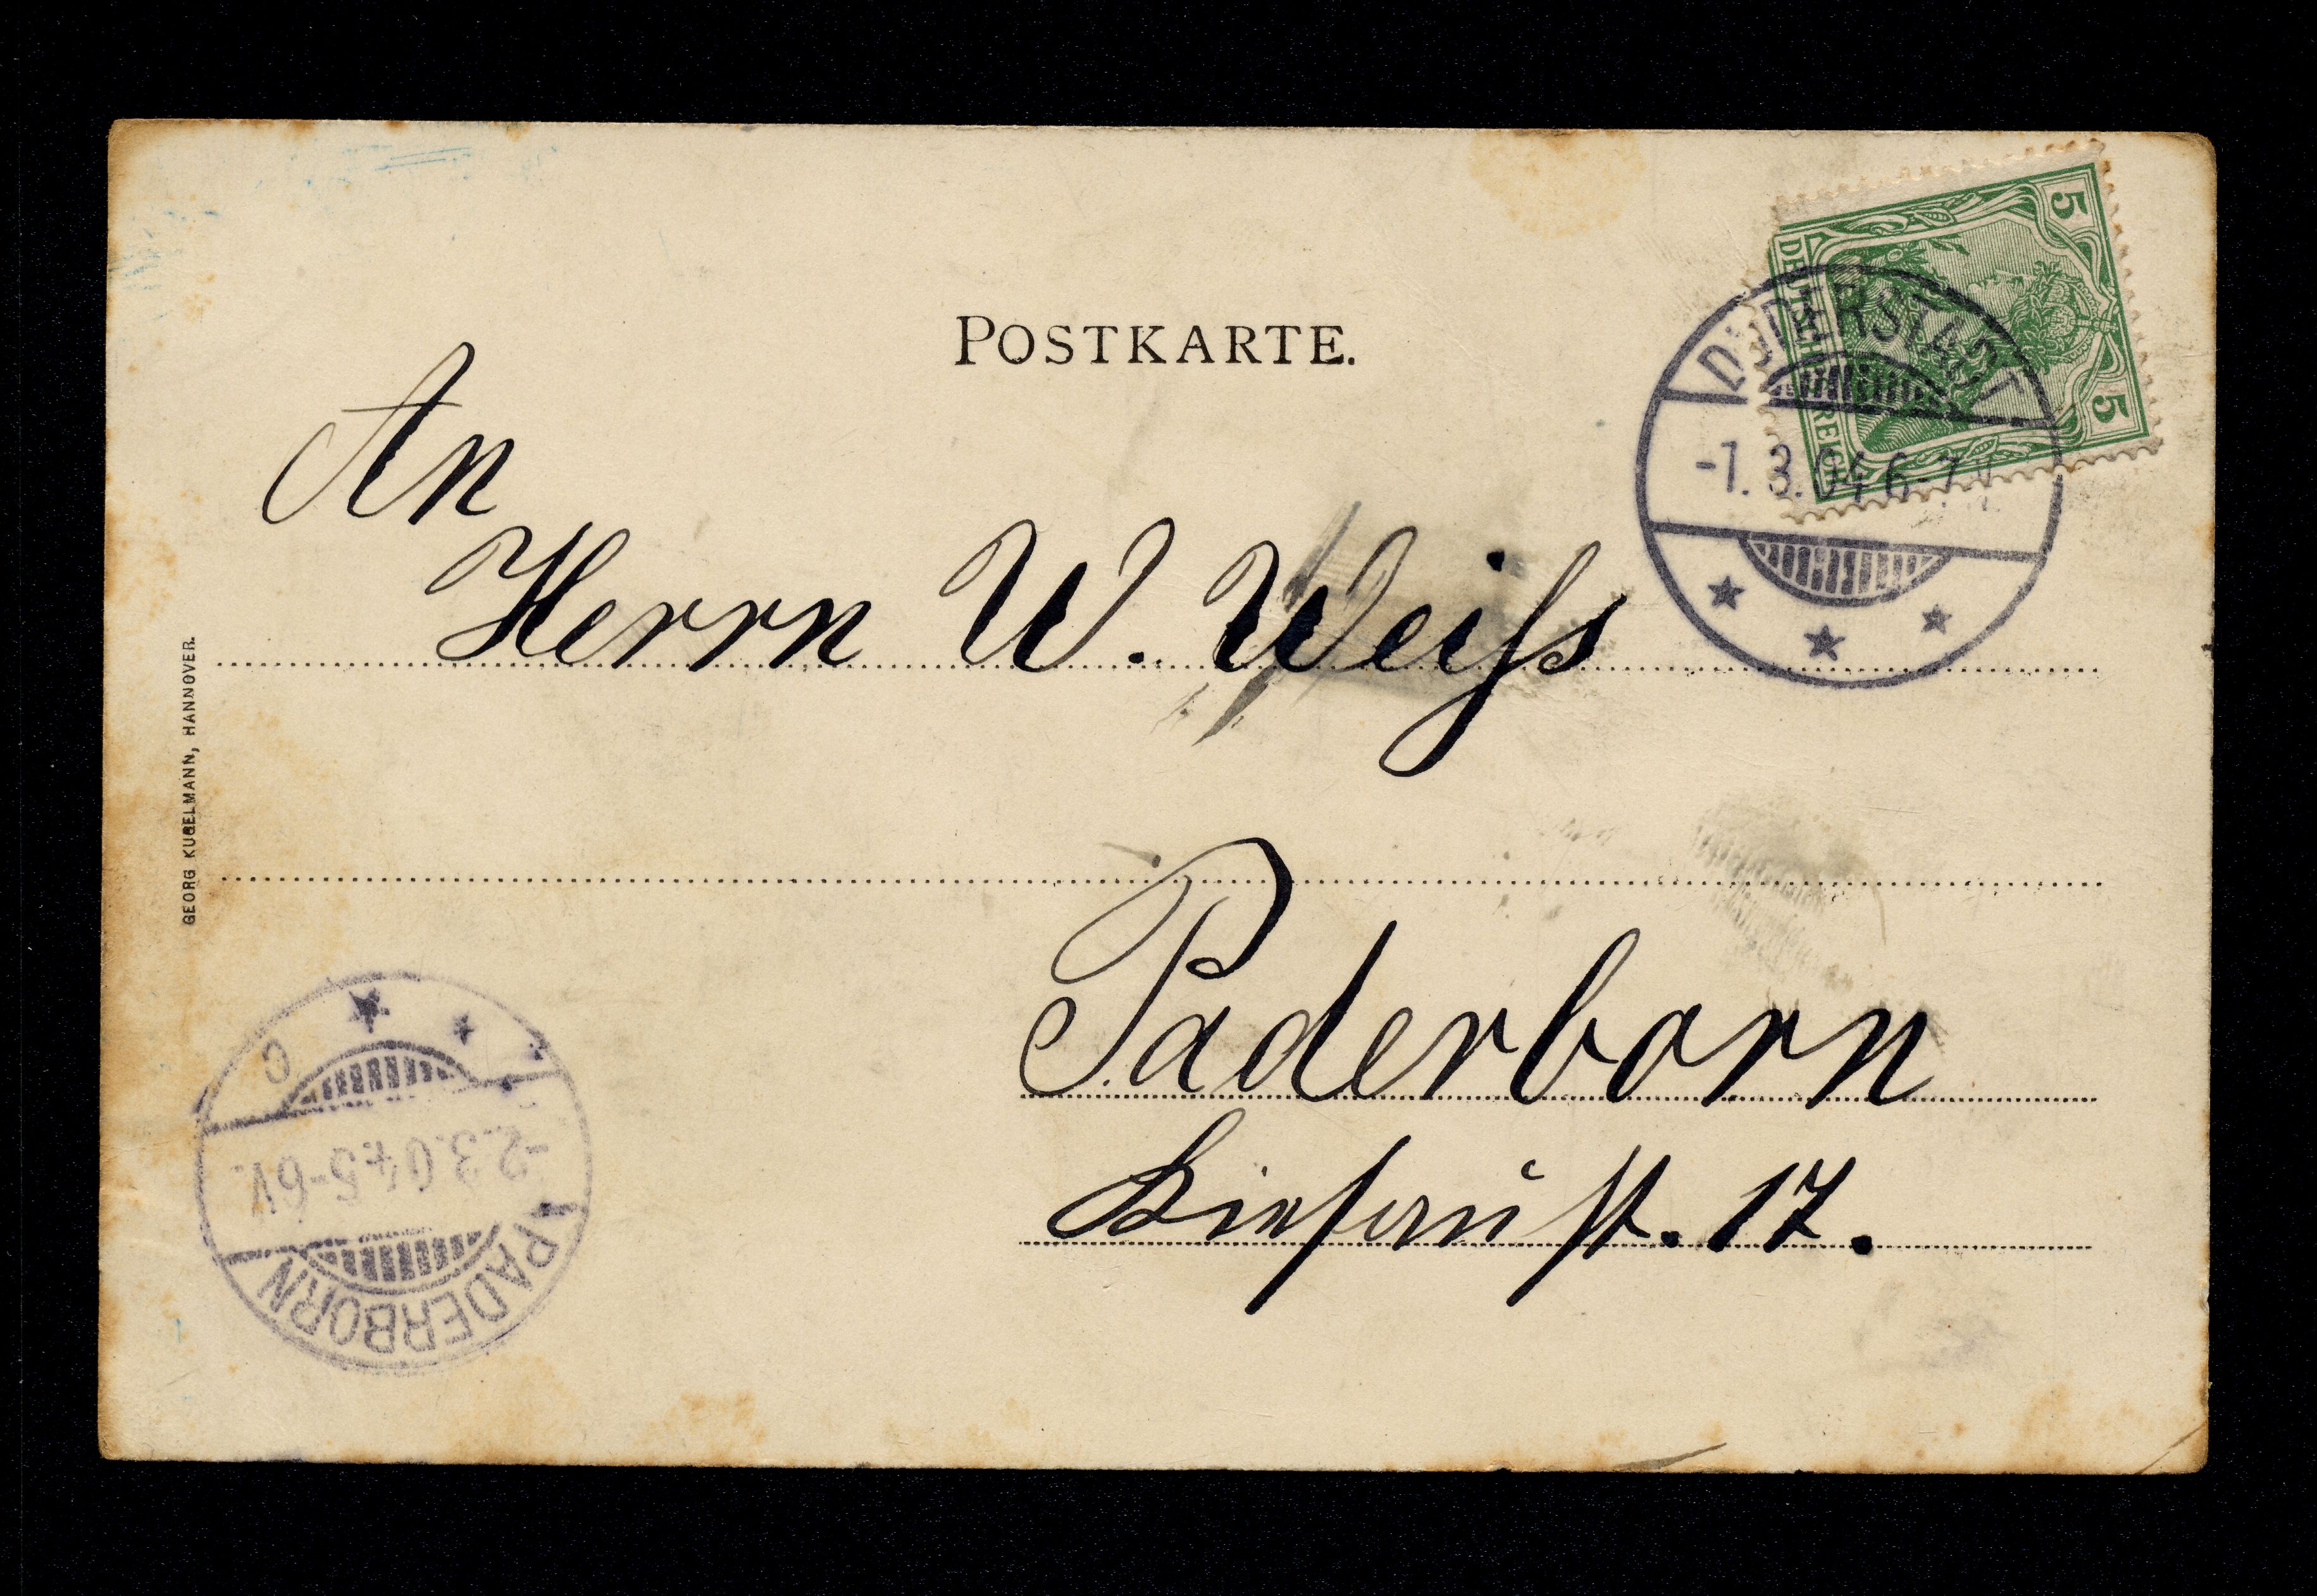 POSTKARTE.
5
5
DEUTSCHES REICH
DUDERSTADT
-1.3.04 6-7 N
An
Herrn W. Weiſs
Paderborn
17.
GEORG KUGELMANN, HANNOVER.
PADERBORN
-2.3.04 5-6 V.
C